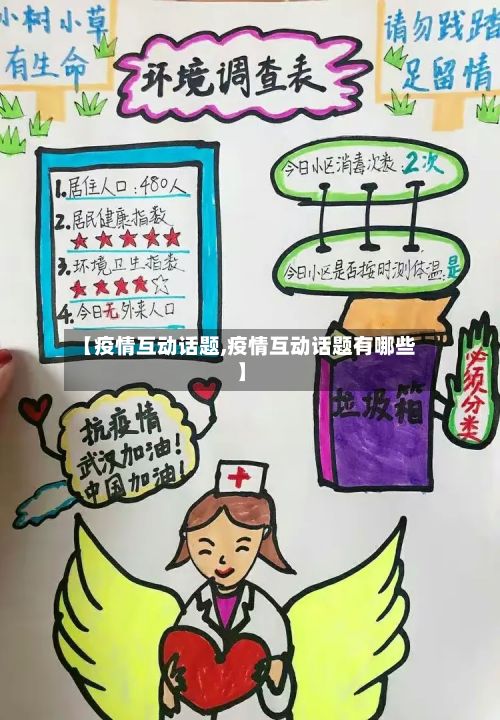 小树小草
有生命
请勿践踏
足留情
环境调查表
1.居住人口:480人
2.居民健康指数
★★★★★
3.环境卫生指数
★★★★☆
4.今日无外来人口
今日小区消毒次数:2次
今日小区是否按时测体温:是
【疫情互动话题,疫情互动话题有哪些
】
垃圾箱
必须分类
抗疫情
武汉加油!
中国加油!